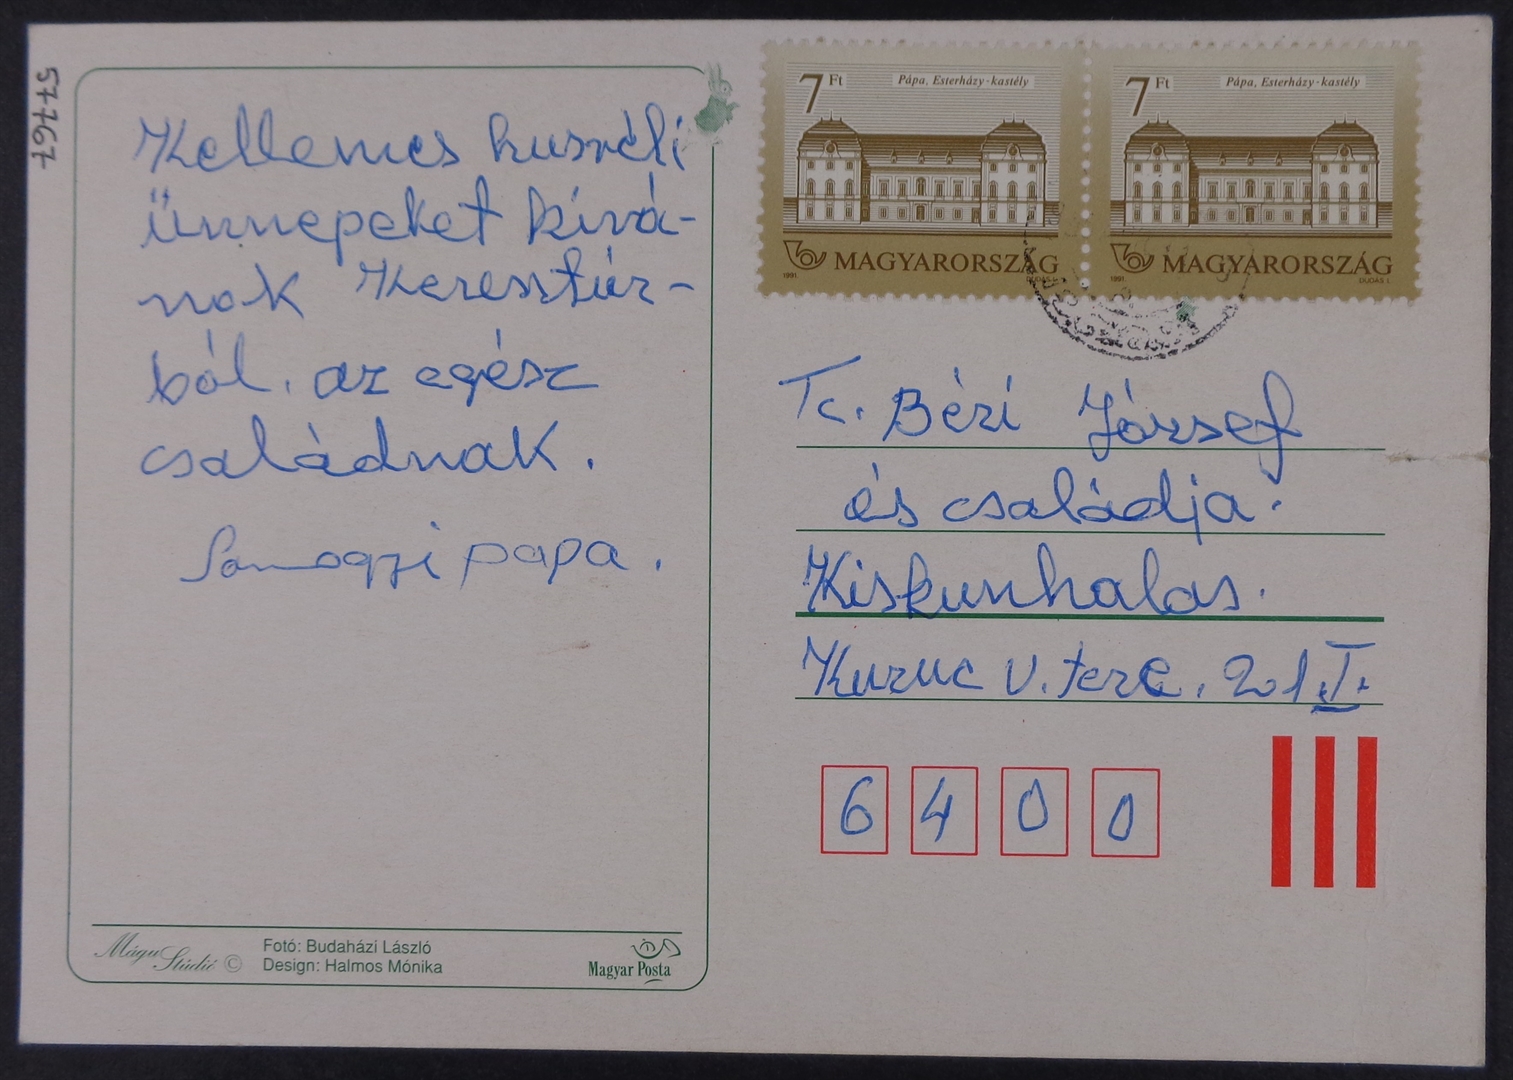 57767
Kellemes husvéti
ünnepeket kivá-
nok Keresztúr-
ból. az egész
családnak.
Somogyi papa.
Mágu Stúdió ©
Fotó: Budaházi László
Design: Halmos Mónika
Magyar Posta
7 Ft Pápa, Esterházy-kastély
MAGYARORSZÁG
1991. DUDÁS L.
7 Ft Pápa, Esterházy-kastély
MAGYARORSZÁG
1991. DUDÁS L.
Tc. Bézi József
és családja.
Kiskunhalas.
Kuruc v. tere. 21. I.
6 4 0 0